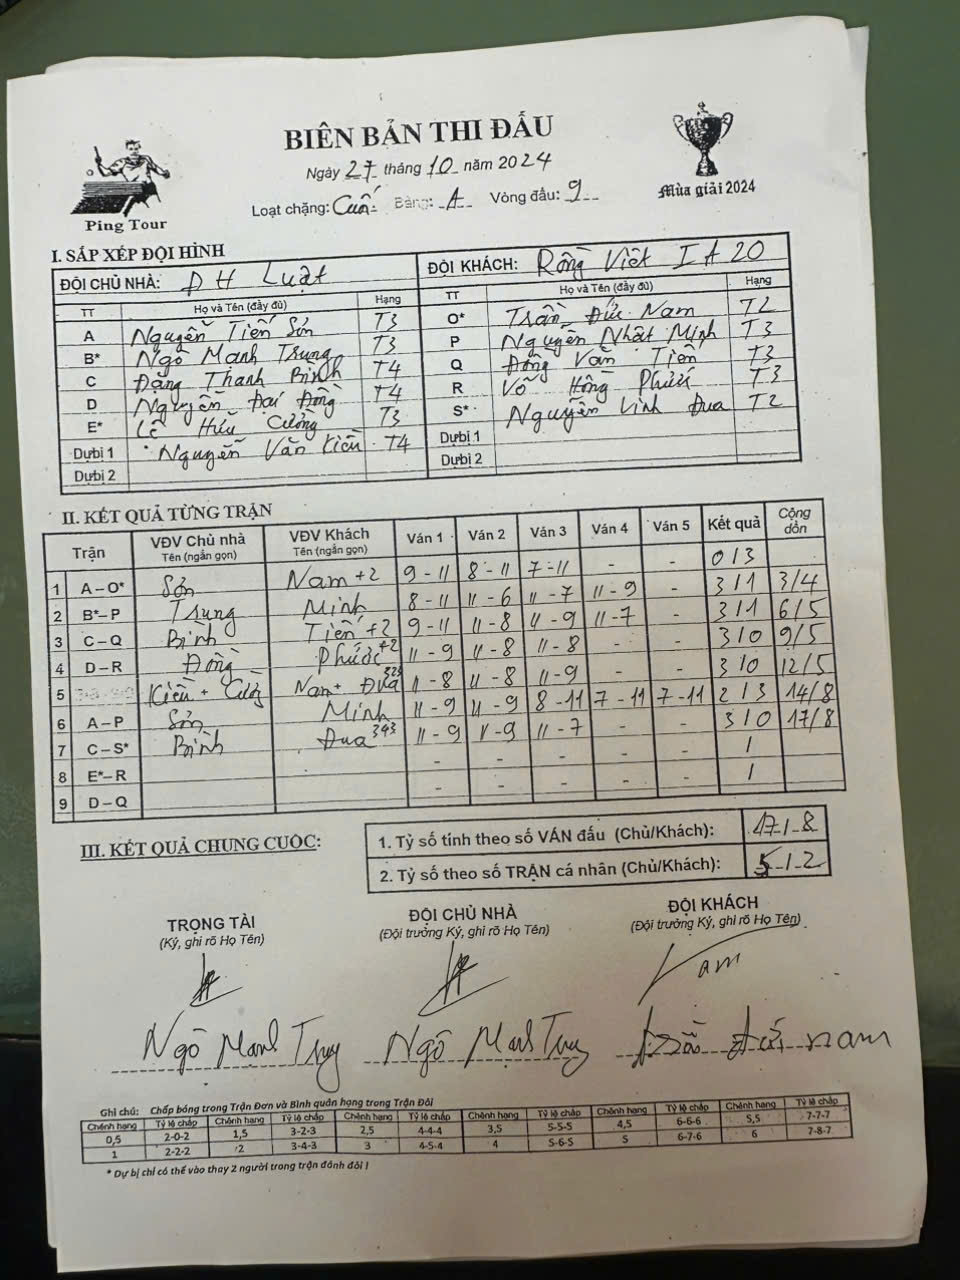 BIÊN BẢN THI ĐẤU
Ngày 27 tháng 10 năm 2024
Loạt chặng: Cuối Bảng: A Vòng đấu: 9
Ping Tour
Mùa giải 2024
I. SẮP XẾP ĐỘI HÌNH
ĐỘI CHỦ NHÀ: ĐH Luật ĐỘI KHÁCH: Rồng Việt I A20
TT Họ và Tên (đầy đủ) Hạng TT Họ và Tên (đầy đủ) Hạng
A Nguyễn Tiến Sơn T3 O* Trần Đức Nam T2
B* Ngô Mạnh Trung T3 P Nguyễn Nhật Minh T3
C Đặng Thanh Bình T4 Q Đồng Văn Tiến T3
D Nguyễn Đại Đồng T4 R Võ Hồng Phước T3
E* Lê Hữu Cường T3 S* Nguyễn Vinh Đua T2
Dự bị 1 Nguyễn Văn Kiều T4 Dự bị 1
Dự bị 2 Dự bị 2
II. KẾT QUẢ TỪNG TRẬN
Trận VĐV Chủ nhà Tên (ngắn gọn) VĐV Khách Tên (ngắn gọn) Ván 1 Ván 2 Ván 3 Ván 4 Ván 5 Kết quả Cộng dồn
1 A – O* Sơn Nam +2 9 - 11 8 - 11 7 - 11 - - 0 / 3
2 B* – P Trung Minh 8 - 11 11 - 6 11 - 7 11 - 9 - 3 / 1 3/4
3 C – Q Bình Tiến +2 9 - 11 11 - 8 11 - 9 11 - 7 - 3 / 1 6/5
4 D – R Đồng Phước +2 11 - 9 11 - 8 11 - 8 - - 3 / 0 9/5
5 Kiều + Cường Nam + Đua 323 11 - 8 11 - 8 11 - 9 - - 3 / 0 12/5
6 A – P Sơn Minh 11 - 9 11 - 9 8 - 11 7 - 11 7 - 11 2 / 3 14/8
7 C – S* Bình Đua 343 11 - 9 11 - 9 11 - 7 - - 3 / 0 17/8
8 E* – R - - - - - /
9 D – Q - - - - - /
III. KẾT QUẢ CHUNG CUỘC:
1. Tỷ số tính theo số VÁN đấu (Chủ/Khách): 17 / 8
2. Tỷ số theo số TRẬN cá nhân (Chủ/Khách): 5 / 2
TRỌNG TÀI ĐỘI CHỦ NHÀ ĐỘI KHÁCH
(Ký, ghi rõ Họ Tên) (Đội trưởng Ký, ghi rõ Họ Tên) (Đội trưởng Ký, ghi rõ Họ Tên)
Nam
Ngô Mạnh Trung Ngô Mạnh Trung Trần Đức Nam
Ghi chú: Chấp bóng trong Trận Đơn và Bình quân hạng trong Trận Đôi
Chênh hạng Tỷ lệ chấp Chênh hạng Tỷ lệ chấp Chênh hạng Tỷ lệ chấp Chênh hạng Tỷ lệ chấp Chênh hạng Tỷ lệ chấp Chênh hạng Tỷ lệ chấp
0,5 2-0-2 1,5 3-2-3 2,5 4-4-4 3,5 5-5-5 4,5 6-6-6 5,5 7-7-7
1 2-2-2 2 3-4-3 3 4-5-4 4 5-6-5 5 6-7-6 6 7-8-7
* Dự bị chỉ có thể vào thay 2 người trong trận đánh đôi !